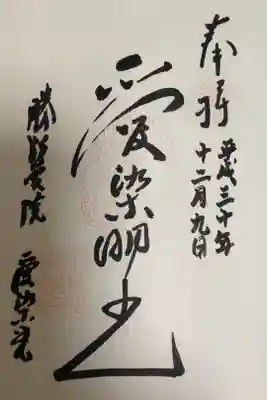 奉拝
平成三十年
十二月九日
愛染明王
勝鬘院
愛染堂